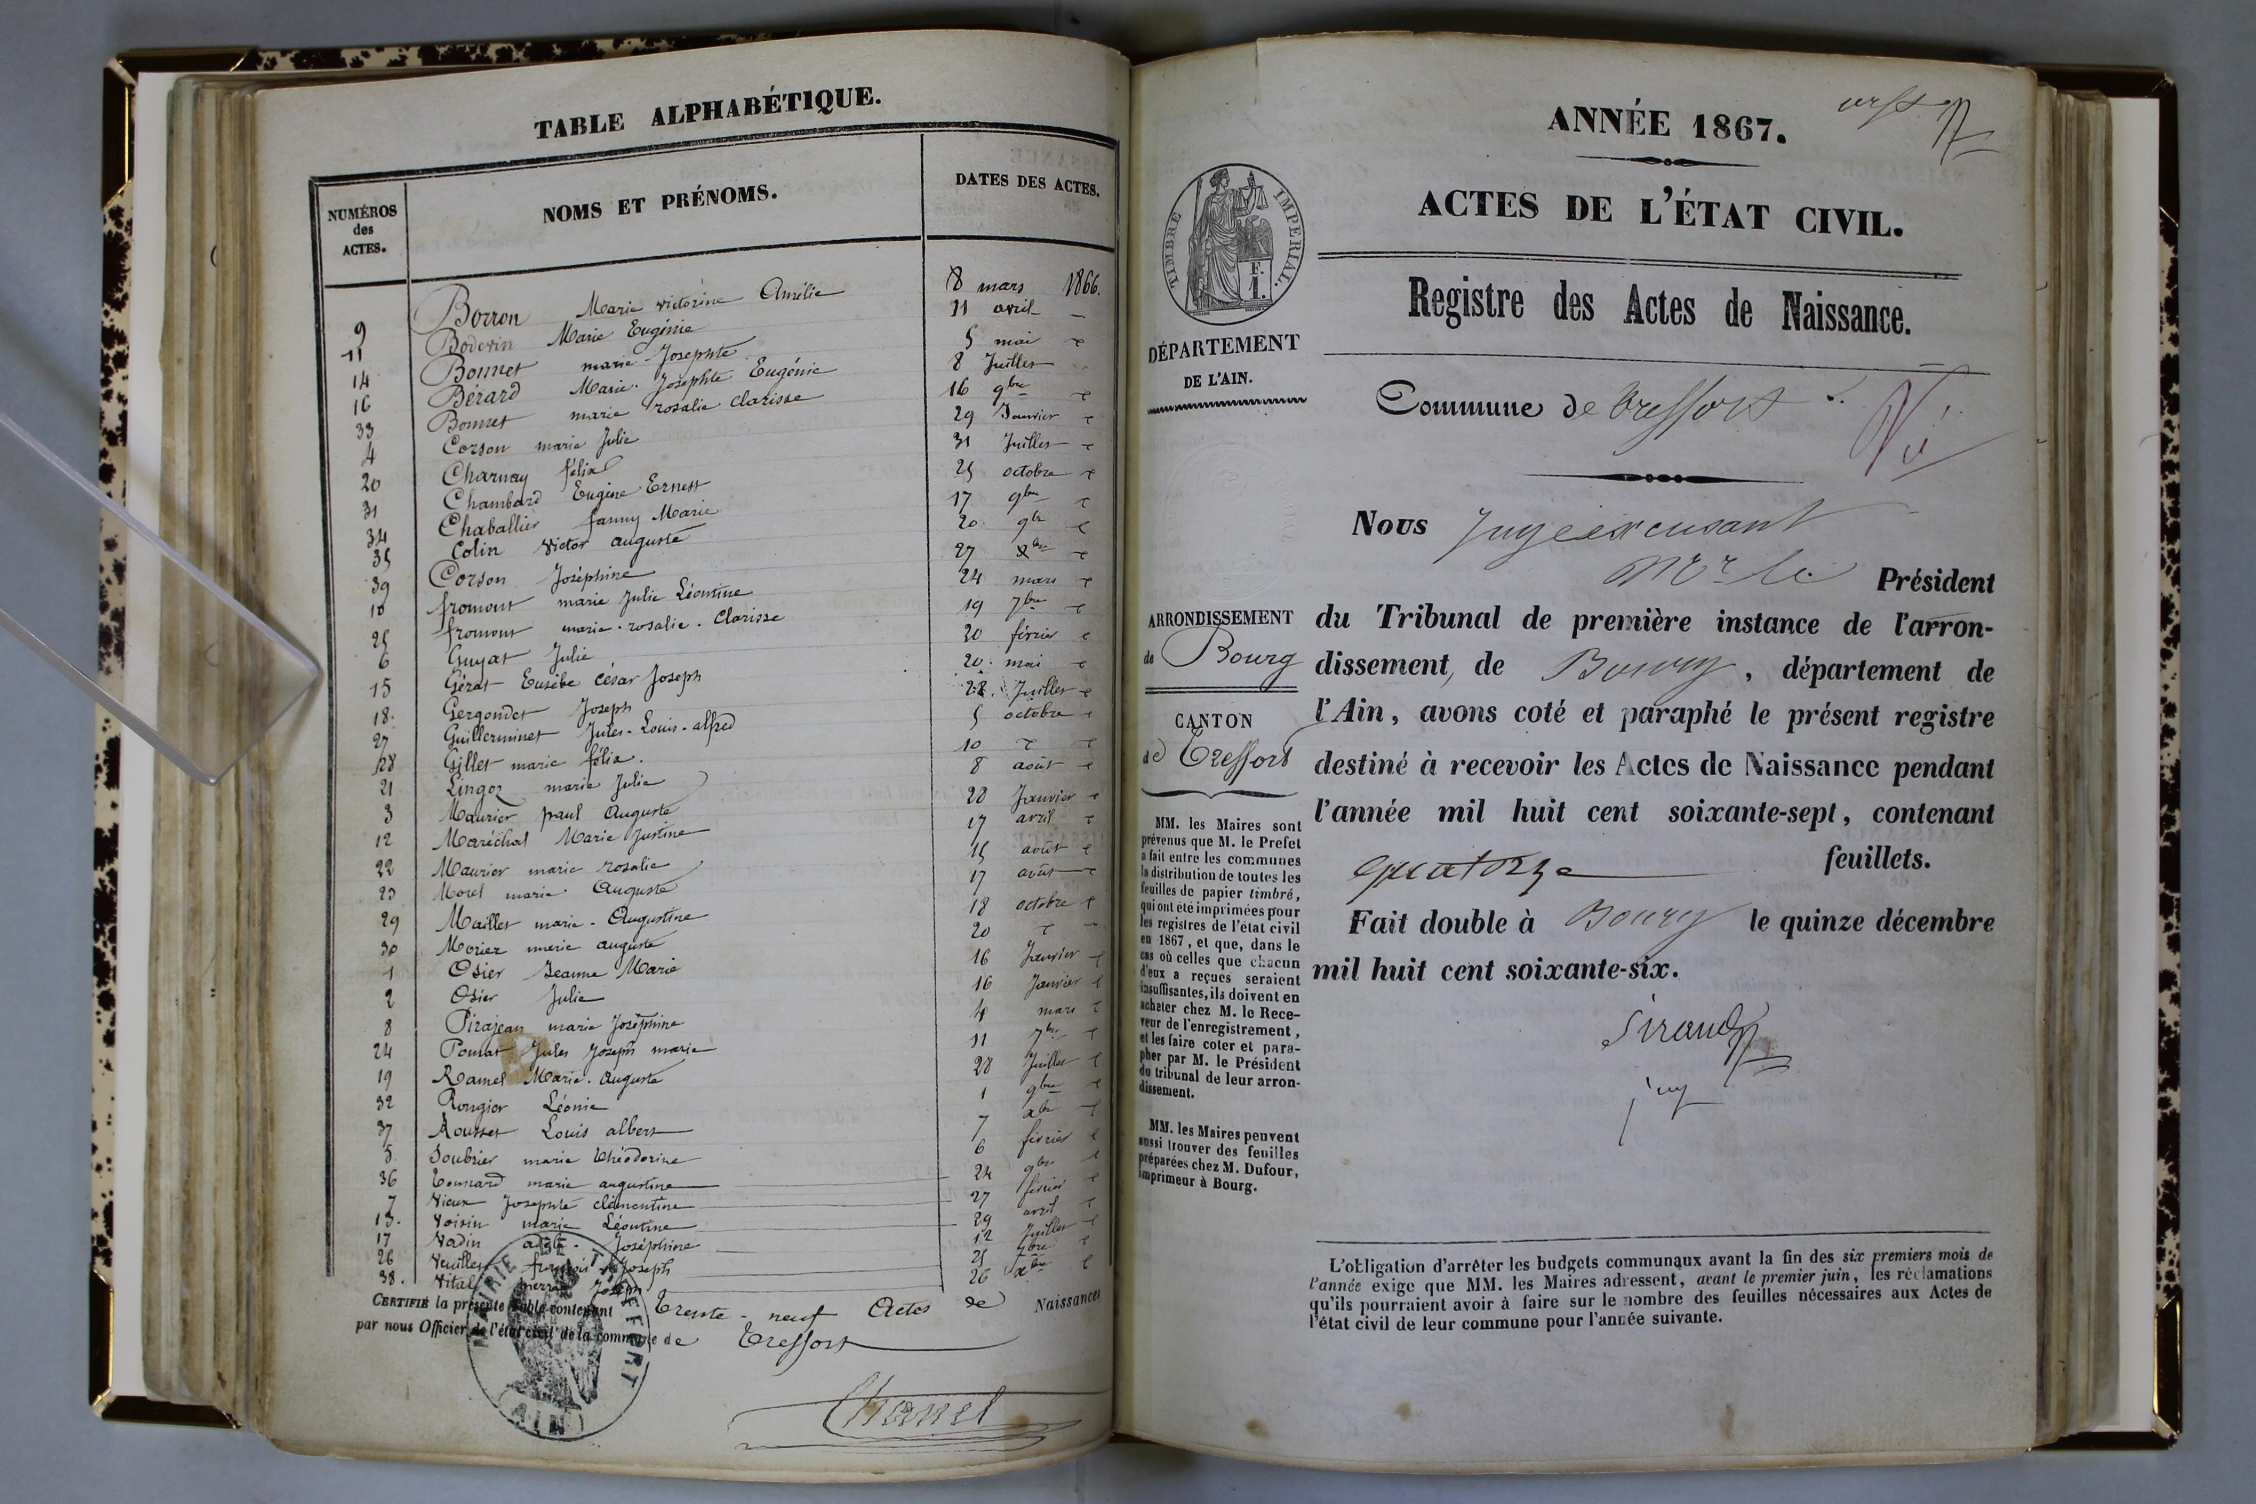 TABLE ALPHABÉTIQUE.
NUMÉROS
des
ACTES.
NOMS ET PRÉNOMS.
DATES DES ACTES.
9 Borron Marie victorine Amélie 8 mars 1866.
11 Boderin Marie Eugénie 11 avril
14 Bonnet marie Josephte 5 mai
16 Bérard Marie Josephte Eugénie 8 Juillet
33 Bonnet marie rosalie clarisse 16 9bre
4 Corson marie Julie 29 Janvier
20 Charnay félix 31 Juillet
31 Chambard Eugène Ernest 25 octobre
34 Chaballier fanny Marie 17 9bre
35 Colin victor auguste 20 9bre
39 Corson Joséphine 27 xbre
10 fromont marie Julie Léontine 24 mars
25 fromont marie rosalie Clarisse 19 7bre
6 Guyat Julie 20 février
15 Gérat Eusèbe César Joseph 20 mai
18 Gergondet Joseph 28 Juillet
27 Guillerminet Jules Louis alfred 5 octobre
28 Gillet marie félix 10
21 Lingoz marie Julie 8 août
3 Maurier paul Auguste 28 Janvier
12 Maréchal Marie Justine 17 avril
22 Maurier marie rosalie 15 août
23 Morel marie Auguste 17 août
29 Maillet marie Augustine 18 octobre
30 Morier marie auguste 20
1 Osier Jeanne Marie 16 Janvier
2 Osier Julie 16 Janvier
8 Pirajean marie Joséphine 4 mars
24 Pomat Jules Joseph marie 11 7bre
19 Ramel Marie Auguste 28 Juillet
32 Rougier Léonie 1 9bre
37 Rousset Louis albert 7 xbre
5 Soubrier marie théodorine 6 février
36 Tonnard marie augustine 24 9bre
7 Vieux Josephte clémentine 27 février
13 Voisin marie Léontine 29 avril
17 Vadin Joséphine 12 Juillet
26 Veuillet françois Joseph 25 7bre
38 Vital pierre Joseph 26 xbre
CERTIFIÉ la présente Table contenant Trente-neuf Actes de Naissances
par nous Officier de l'état civil de la commune de Treffort
MAIRIE DE TREFFORT
(AIN)
Chanel
ANNÉE 1867.
ACTES DE L'ÉTAT CIVIL.
TIMBRE IMPÉRIAL.
F.
1.
Registre des Actes de Naissance.
DÉPARTEMENT
DE L'AIN.
Commune de Treffort
Nous Juge excusant
Mr le Président
ARRONDISSEMENT
de Bourg
du Tribunal de première instance de l'arron-
dissement, de Bourg, département de
l'Ain, avons coté et paraphé le présent registre
CANTON
de Treffort
destiné à recevoir les Actes de Naissance pendant
l'année mil huit cent soixante-sept, contenant
quatorze feuillets.
Fait double à Bourg le quinze décembre
mil huit cent soixante-six.
Sirand
juge
MM. les Maires sont
prévenus que M. le Prefet
a fait entre les communes
la distribution de toutes les
feuilles de papier timbré,
qui ont été imprimées pour
les registres de l'état civil
en 1867, et que, dans le
cas où celles que chacun
d'eux a reçues seraient
insuffisantes, ils doivent en
acheter chez M. le Rece-
veur de l'enregistrement,
et les faire coter et para-
pher par M. le Président
du tribunal de leur arron-
dissement.
MM. les Maires peuvent
aussi trouver des feuilles
préparées chez M. Dufour,
imprimeur à Bourg.
L'obligation d'arrêter les budgets communaux avant la fin des six premiers mois de
l'année exige que MM. les Maires adressent, avant le premier juin, les réclamations
qu'ils pourraient avoir à faire sur le nombre des feuilles nécessaires aux Actes de
l'état civil de leur commune pour l'année suivante.